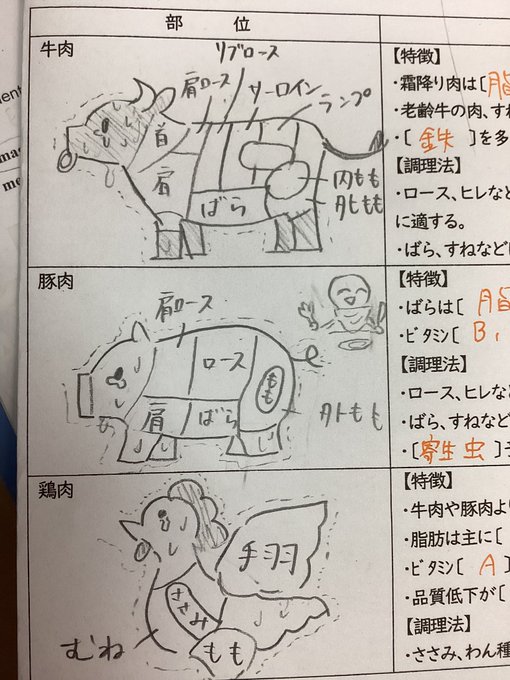 部 位
牛肉
リブロース
肩ロース
サーロイン
ランプ
首
肩
ばら
内もも
外もも
【特徴】
・霜降り肉は[脂
・老齢牛の肉、すね
・[鉄]を多
【調理法】
・ロース、ヒレなど
に適する。
・ばら、すねなどに
豚肉
肩ロース
ロース
肩
ばら
もも
外もも
【特徴】
・ばらは[脂
・ビタミン[B₁
【調理法】
・ロース、ヒレな
・ばら、すねなど
・[寄生虫]
鶏肉
手羽
ささみ
むね
もも
【特徴】
・牛肉や豚肉より
・脂肪は主に[
・ビタミン[A]
・品質低下が[
【調理法】
・ささみ、わん種
ma
me